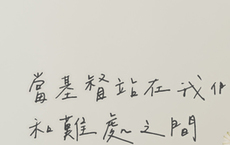 當基督站在我們
和難處之間